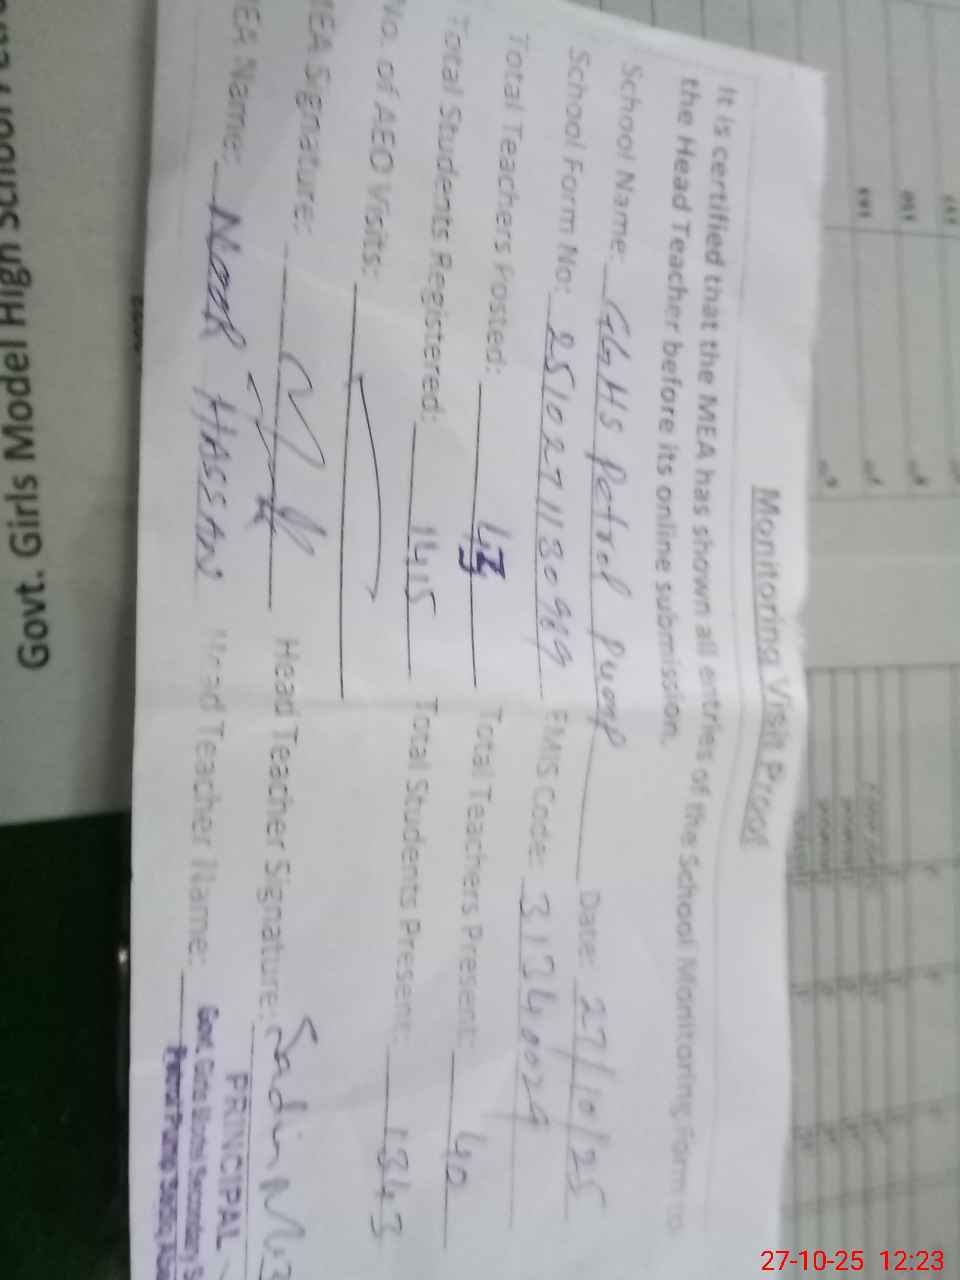 Monitoring Visit Proof
It is certified that the MEA has shown all entries of the School Monitoring Form to
the Head Teacher before its online submission.
School Name: GGHS Petrol Pump Date: 27/10/25
School Form No: EMIS Code: 31340029
Total Teachers Posted: 43 Total Teachers Present: 40
Total Students Registered: 1415 Total Students Present: 1343
No. of AEO Visits:
MEA Signature: Head Teacher Signature:
MEA Name: Noor HASSAN Head Teacher Name:
PRINCIPAL
Govt. Girls Model Secondary
Petrol Pump
Govt. Girls Model High School
27-10-25 12:23